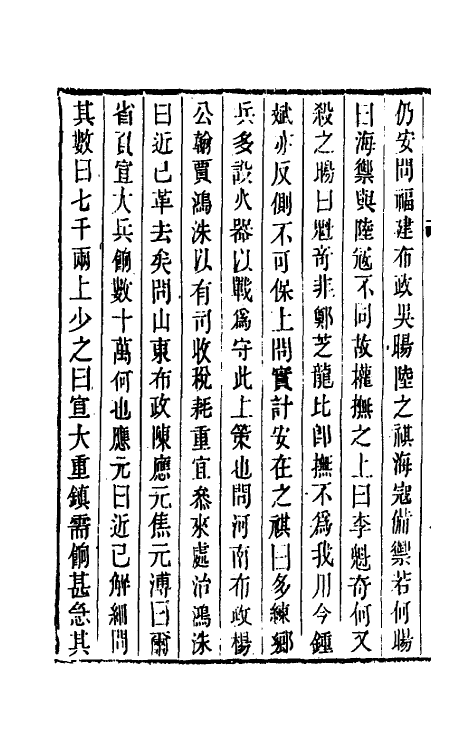 仍安問福建布政吳暘陸之祺海寇備禦若何暘
曰海禦與陸寇不同故權撫之上曰李魁奇何又
殺之暘曰魁奇非鄭芝龍比即撫不為我用今鍾
斌亦反側不可保上問實計安在之祺曰多練鄉
兵多設火器以戰為守此上策也問河南布政楊
公翰賈鴻洙以有司收稅耗重宜叅來處治鴻洙
曰近已革去矣問山東布政陳應元焦元溥曰爾
省負宣大兵餉數十萬何也應元曰近已解細問
其數曰七千兩上少之曰宣大重鎮需餉甚急其